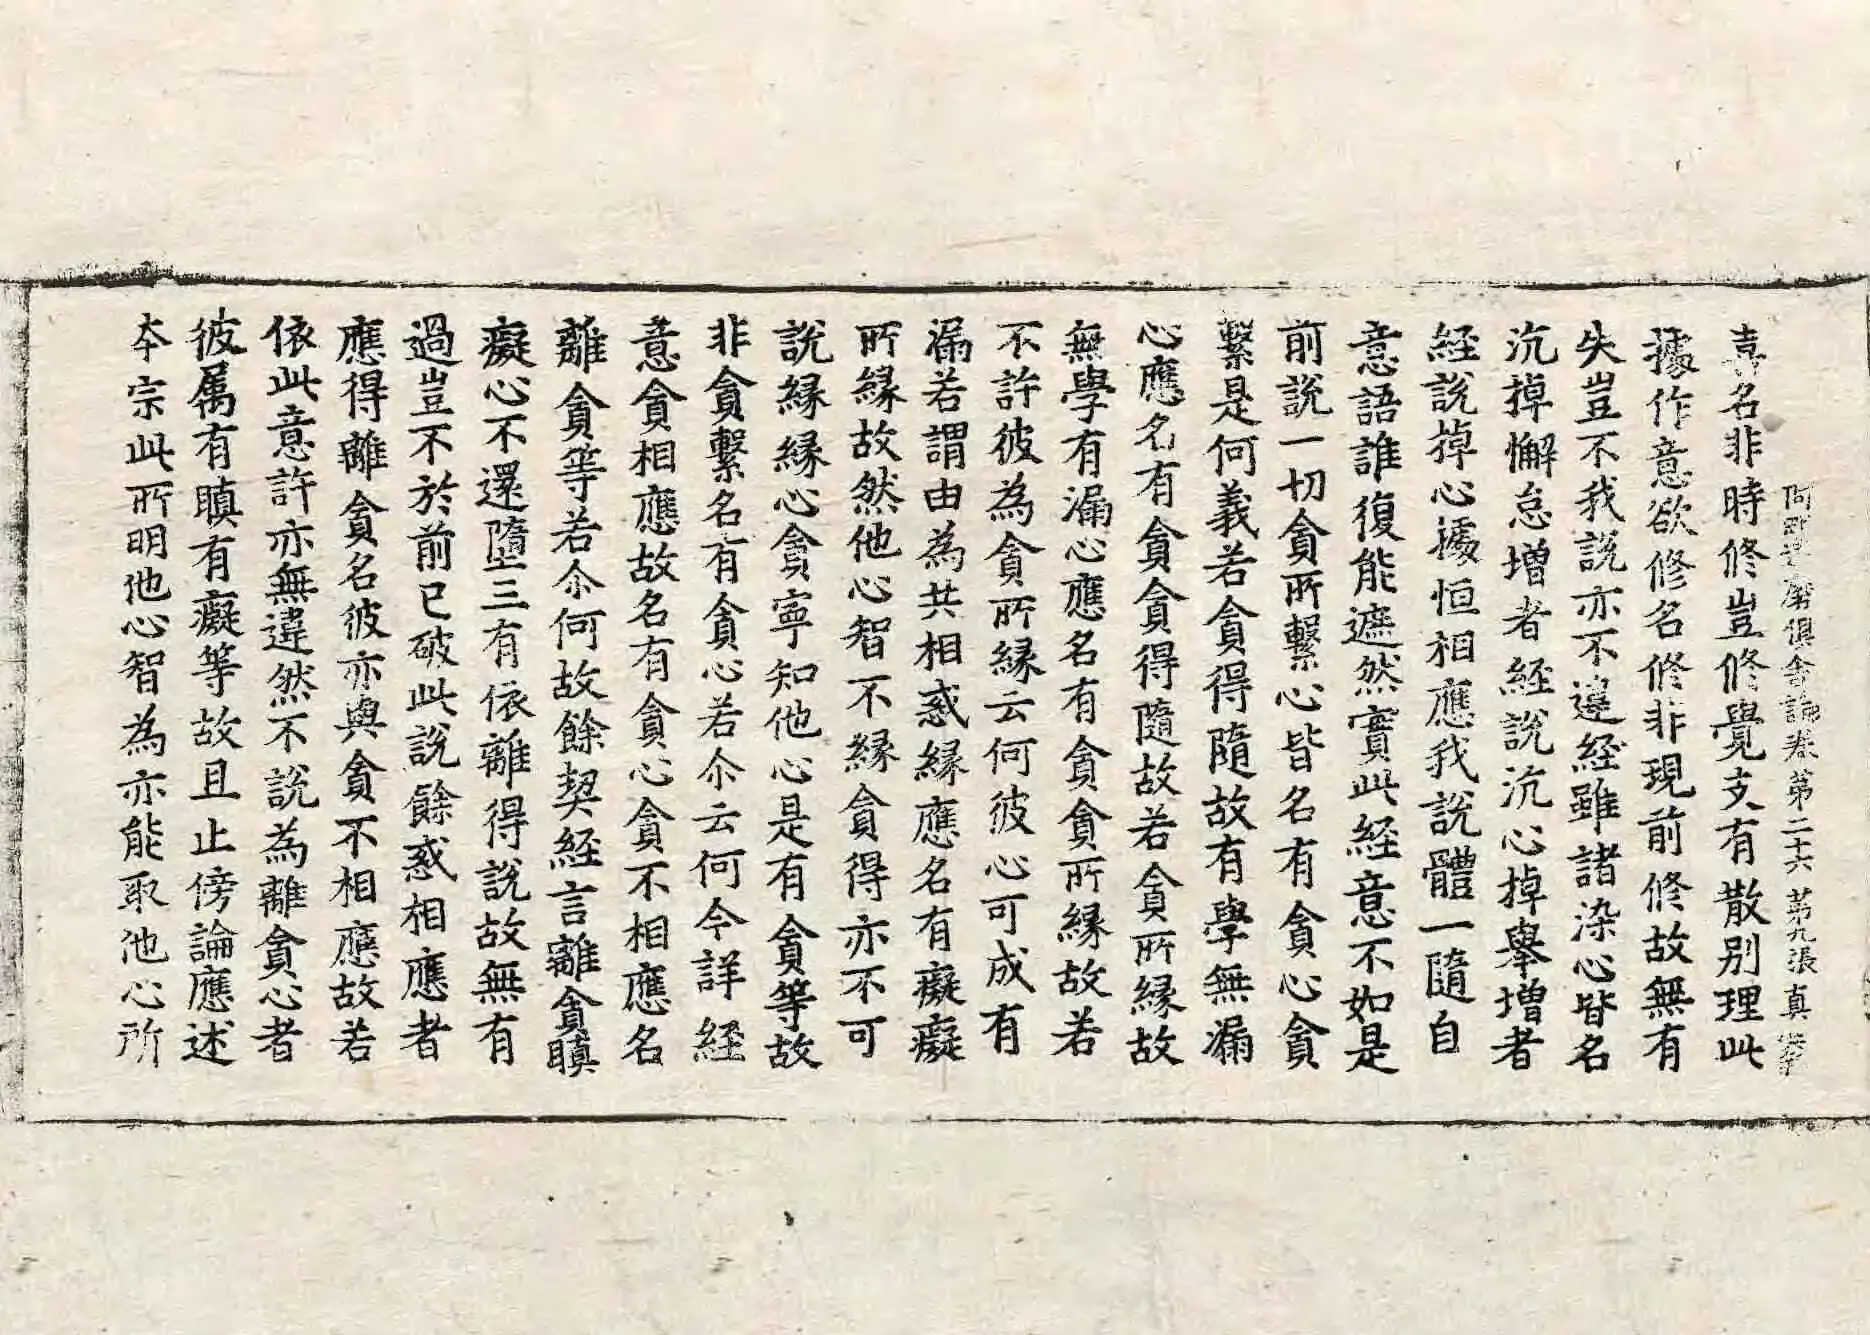 阿毗達磨俱舍論卷第二十六 第九張 真
喜名非時修豈修覺支有散別理此
據作意欲修名修非現前修故無有
失豈不我說亦不違經雖諸染心皆名
沉掉懈怠增者經說沉心掉舉增者
經說掉心據恒相應我說體一隨自
意語誰復能遮然實此經意不如是
前說一切貪所繫心皆名有貪心貪
繫是何義若貪得隨故有學無漏
心應名有貪貪得隨故若貪所緣故
無學有漏心應名有貪貪所緣故若
不許彼為貪所緣云何彼心可成有
漏若謂由為共相惑緣應名有癡癡
所緣故然他心智不緣貪得亦不可
說緣緣心貪寧知他心是有貪等故
非貪繫名有貪心若尒云何今詳經
意貪相應故名有貪心貪不相應名
離貪等若尒何故餘契經言離貪瞋
癡心不還墮三有依離得說故無有
過豈不於前已破此說餘惑相應者
應得離貪名彼亦與貪不相應故若
依此意許亦無違然不說為離貪心者
彼属有瞋有癡等故且止傍論應述
本宗此所明他心智為亦能取他心所